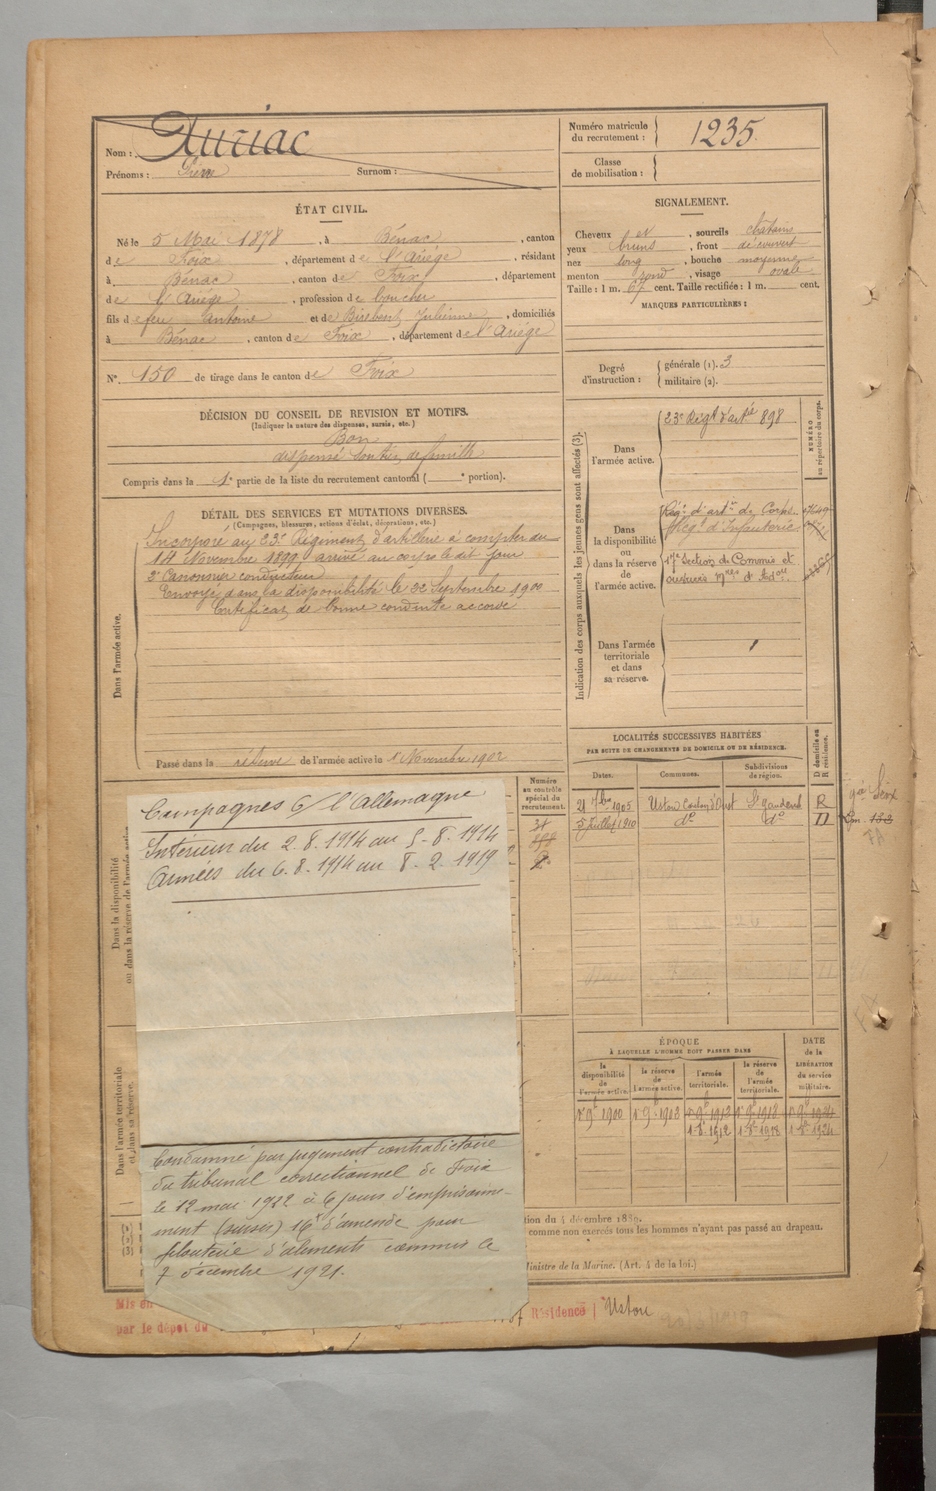 Nom : Auriac
Prénoms : Surnom :
Numéro matricule du recrutement : 1235.
Classe de mobilisation :
ÉTAT CIVIL.
Né le 5 Mai 1878, à Bénac, canton
de Foix, département de l'Ariège, résidant
à Bénac, canton de Foix, département
de l'Ariège, profession de boucher
fils de feu antoine et de Birebent Julienne, domiciliés
à Bénac, canton de Foix, département de l'Ariège
N° 150 de tirage dans le canton de Foix
SIGNALEMENT.
Cheveux et, sourcils chatains
yeux bruns, front découvert
nez long, bouche moyenne
menton rond, visage ovale
Taille : 1 m. 67 cent. Taille rectifiée : 1 m. cent.
MARQUES PARTICULIÈRES :
Degré d'instruction : générale (1). 3
militaire (2).
DÉCISION DU CONSEIL DE REVISION ET MOTIFS.
(Indiquer la nature des dispenses, sursis, etc.)
Bon
dispensé soutien de famille
Compris dans la 1e partie de la liste du recrutement cantonal ( e portion).
DÉTAIL DES SERVICES ET MUTATIONS DIVERSES.
(Campagnes, blessures, actions d'éclat, décorations, etc.)
Dans l'armée active.
Incorporé au 23e Régiment d'artillerie à compter du
14 Novembre 1899 arrivé au corps le dit jour
2e Canonnier conducteur
Envoyé dans la disponibilité le 22 Septembre 1900
Certificat de bonne conduite accordé
Passé dans la réserve de l'armée active le 1 Novembre 1902
Indication des corps auxquels les jeunes gens sont affectés (3).
NUMÉRO au répertoire du corps.
Dans l'armée active.
23e Régt d'artie 898
Dans la disponibilité ou dans la réserve de l'armée active.
Régt d'artie de Corps
Régt d'Infanterie
17e Section de Commis et
ouvriers
Dans l'armée territoriale et dans sa réserve.
LOCALITÉS SUCCESSIVES HABITÉES
PAR SUITE DE CHANGEMENTS DE DOMICILE OU DE RÉSIDENCE.
Dates. Communes. Subdivisions de région. D domicile ou R résidence.
21 7bre 1905 Ustou Canton d'Oust St Gaudens R
5 Juillet 1910 do do D
Numéro au contrôle spécial du recrutement.
Dans la disponibilité ou dans la réserve de l'armée active.
Campagnes c/ l'Allemagne
Intérieur du 2.8.1914 au 5.8.1914
Armées du 6.8.1914 au 8.2.1919
Dans l'armée territoriale et dans sa réserve.
ÉPOQUE
À LAQUELLE L'HOMME DOIT PASSER DANS
la disponibilité de l'armée active. la réserve de l'armée active. l'armée territoriale. la réserve de l'armée territoriale. DATE de la LIBÉRATION du service militaire.
Condamné par jugement contradictoire
du tribunal correctionnel de Foix
le 12 mai 1922 à 6 jours d'emprisonne-
ment (sursis) 16f d'amende pour
filouterie d'aliments commis le
7 décembre 1921.
tion du 4 décembre 1889.
comme non exercés tous les hommes n'ayant pas passé au drapeau.
Ministre de la Marine. (Art. 4 de la loi.)
Mis en
par le dépot du
Résidence Ustou